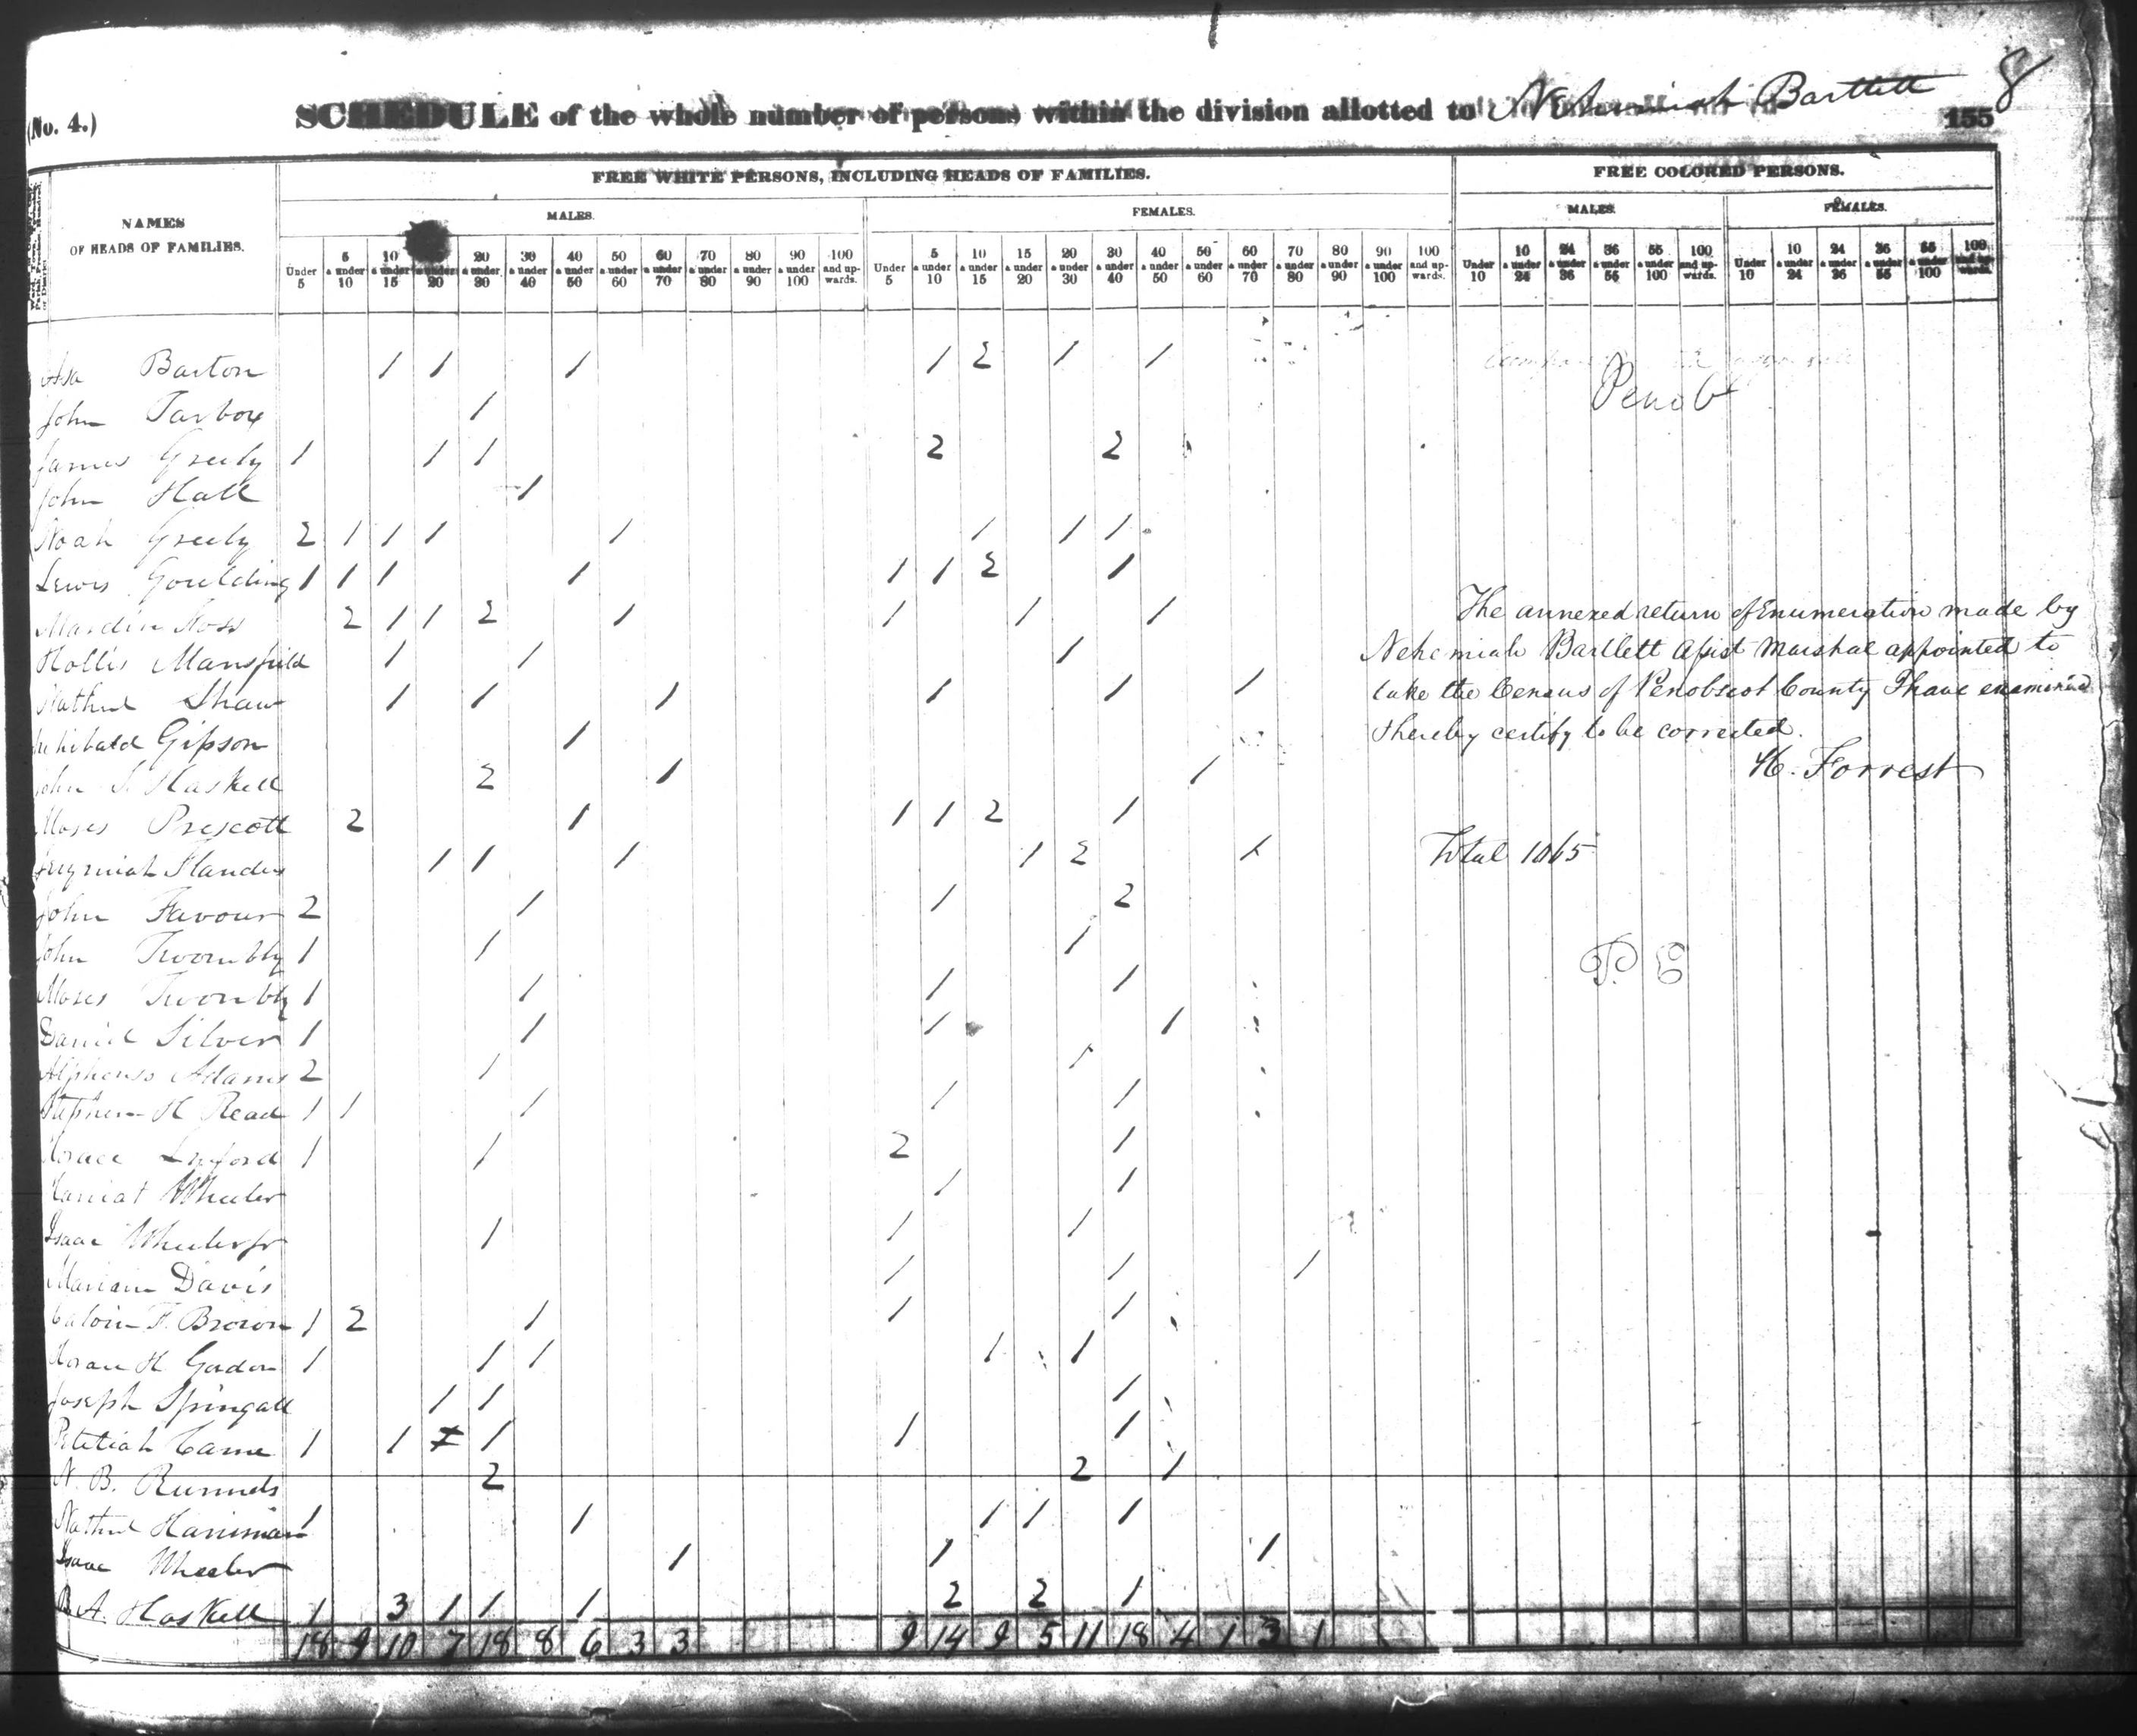 (No. 4.) SCHEDULE of the whole number of persons within the division allotted to Nehemiah Bartlett 8
155
FREE WHITE PERSONS, INCLUDING HEADS OF FAMILIES. FREE COLORED PERSONS.
NAMES OF HEADS OF FAMILIES.
MALES. FEMALES. MALES. FEMALES.
Under 5 5 & under 10 10 & under 15 & under 20 20 & under 30 30 & under 40 40 & under 50 50 & under 60 60 & under 70 70 & under 80 80 & under 90 90 & under 100 100 and upwards. Under 5 5 & under 10 10 & under 15 15 & under 20 20 & under 30 30 & under 40 40 & under 50 50 & under 60 60 & under 70 70 & under 80 80 & under 90 90 & under 100 100 and upwards. Under 10 10 & under 24 24 & under 36 36 & under 55 55 & under 100 100 and upwards. Under 10 10 & under 24 24 & under 36 36 & under 55 55 & under 100 100 and upwards.
Asa Barton 1 1 1 1 2 1 1
Penob
John Tarbox 1
James Greely 1 1 1 2 2
John Hall 1
Noah Greely 2 1 1 1 1 1 1 1
Lewis Goulding 1 1 1 1 1 1 2 1
2 1 1 2 1 1 1 1
Hollis Mansfield 1 1 1
Nathnl Shaw 1 1 1 1 1 1
Gipson 1
John S. Haskell 2 1 1
Moses Prescott 2 1 1 1 2 1
Flanders 1 1 1 1 2 1
John Favour 2 1 1 2
John Twombly 1 1 1
Moses Twombly 1 1 1 1
Daniel Silver 1 1 1 1
Alphonso Adams 2 1 1
Stephen H Read 1 1 1 1 1
Horace 1 1 2 1
Wheeler 1 1
Isaac Wheeler jr 1 1 1
Mariam Davis 1 1 1
Calvin F. Brown 1 2 1 1 1
H Gordon 1 1 1 1 1
Joseph Springall 1 1 1
Came 1 1 1 1 1
N. B. Runnels 2 2 1
Nathnl Harriman 1 1 1 1 1
Isaac Wheeler 1 1 1
B. A. Haskell 1 3 1 1 1 2 2 1
18 9 10 7 18 8 6 3 3 9 14 9 5 11 18 4 1 3 1
The annexed return of Enumeration made by
Nehemiah Bartlett Assist Marshal appointed to
take the Census of Penobscot County I have examined
& hereby certify to be corrected.
H. Forrest
Total 1065